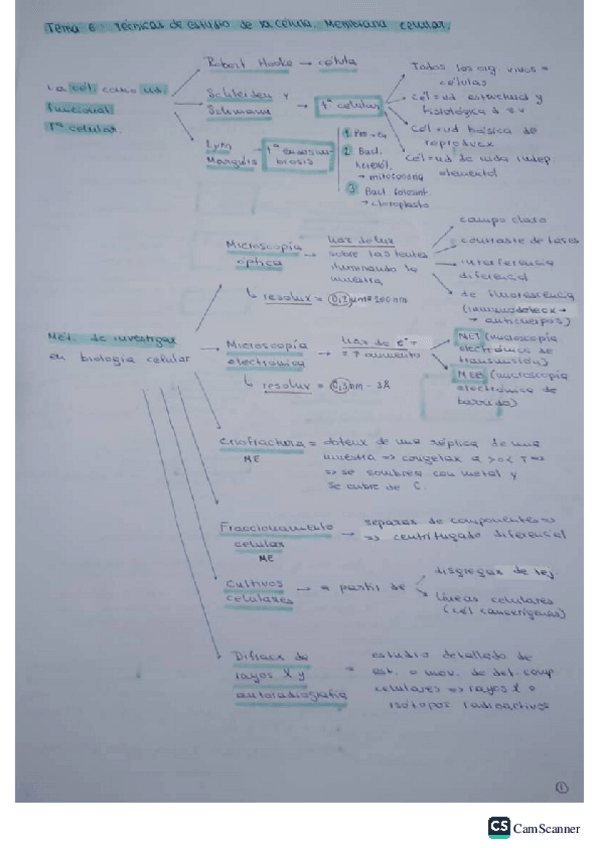 Tema 6: Técnicas de estudio de la célula. Membrana celular.
La cél. como ud.
funcional
Tª celular.
Robert Hooke → célula
Schleiden y
Schwann
Tª celular
Todos los org vivos =
células
cél = ud estructural y
fisiológica
cél = ud básica de
reproducx
cél = ud de vida indep.
elemental
Lynn
Margulis
Tª endosim-
biosis
1
2 Bact.
→ mitocondria
3 Bact fotosint.
→ cloroplasto
Mét. de investigax
en biología celular
Microscopía
óptica
haz de luz
sobre las lentes
iluminando la
muestra
↳ resolux = 0,2 µm = 200 nm
campo claro
contraste de fases
interferencia
diferencial
de fluorescencia
(inmunodetecx →
→ anticuerpos)
Microscopía
electrónica
haz de e⁻ →
= ↑ aumento
↳ resolux = 0,3 nm - 3Å
MET (microscopía
electrónica de
transmisión)
MEB (microscopía
electrónica de
barrido)
Criofractura = obtenx de una réplica de una
ME
muestra => congelax a
=> se sombrea con metal y
se cubre de C.
Fraccionamiento
celular
ME
separax de componentes =>
=> centrifugado diferencial
Cultivos
celulares
→ a partir de
disgregax de tej
líneas celulares
(cél cancerígenas)
Difracx de
rayos X y
autoradiografía
= estudio detallado de
est. o mov. de det. comp
celulares => rayos X o
isótopos radioactivos
1
CS CamScanner